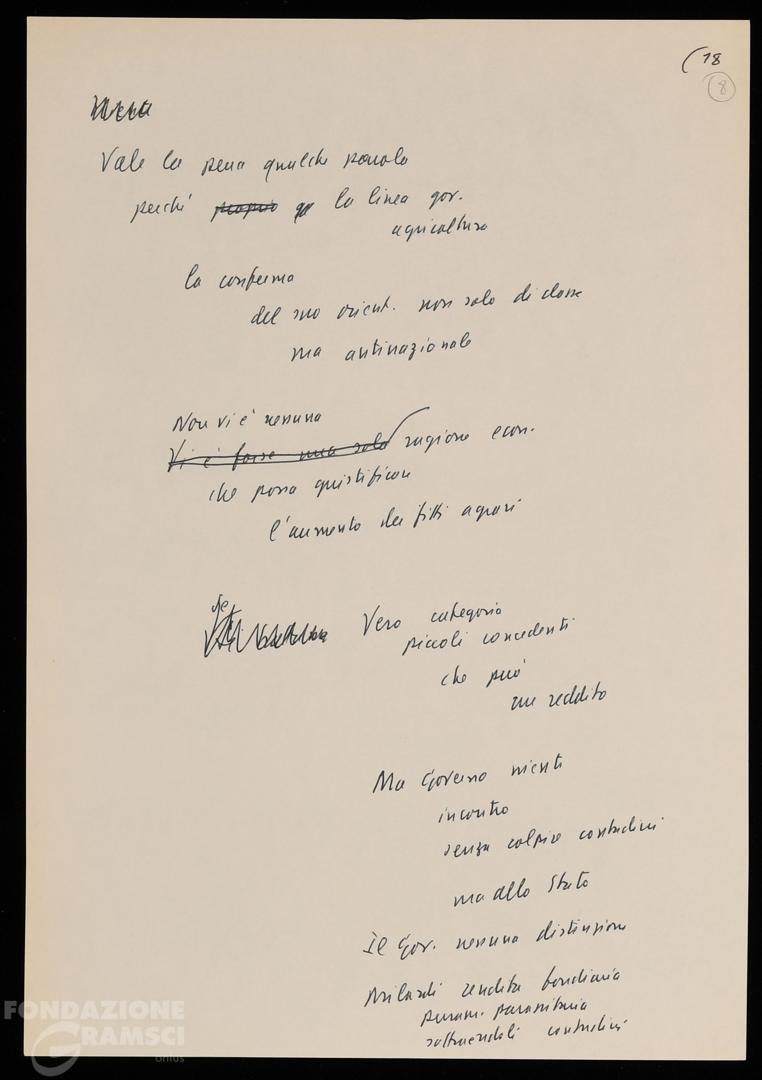 (18
8
Vale la pena qualche parola
perché proprio la linea gov.
agricoltura
la conferma
del suo orient. non solo di classe
ma antinazionale
Non vi è nessuna
Vi è forse una sola ragione econ.
che possa giustificare
l'aumento dei fitti agrari
Vero categoria
piccoli concedenti
che può
un reddito
Ma Governo niente
incontro
senza colpire contadini
ma allo Stato
Il Gov. nessuna distinzione
Miliardi rendita fondiaria
puram. parassitaria
sottraendoli contadini
FONDAZIONE
GRAMSCI
onlus